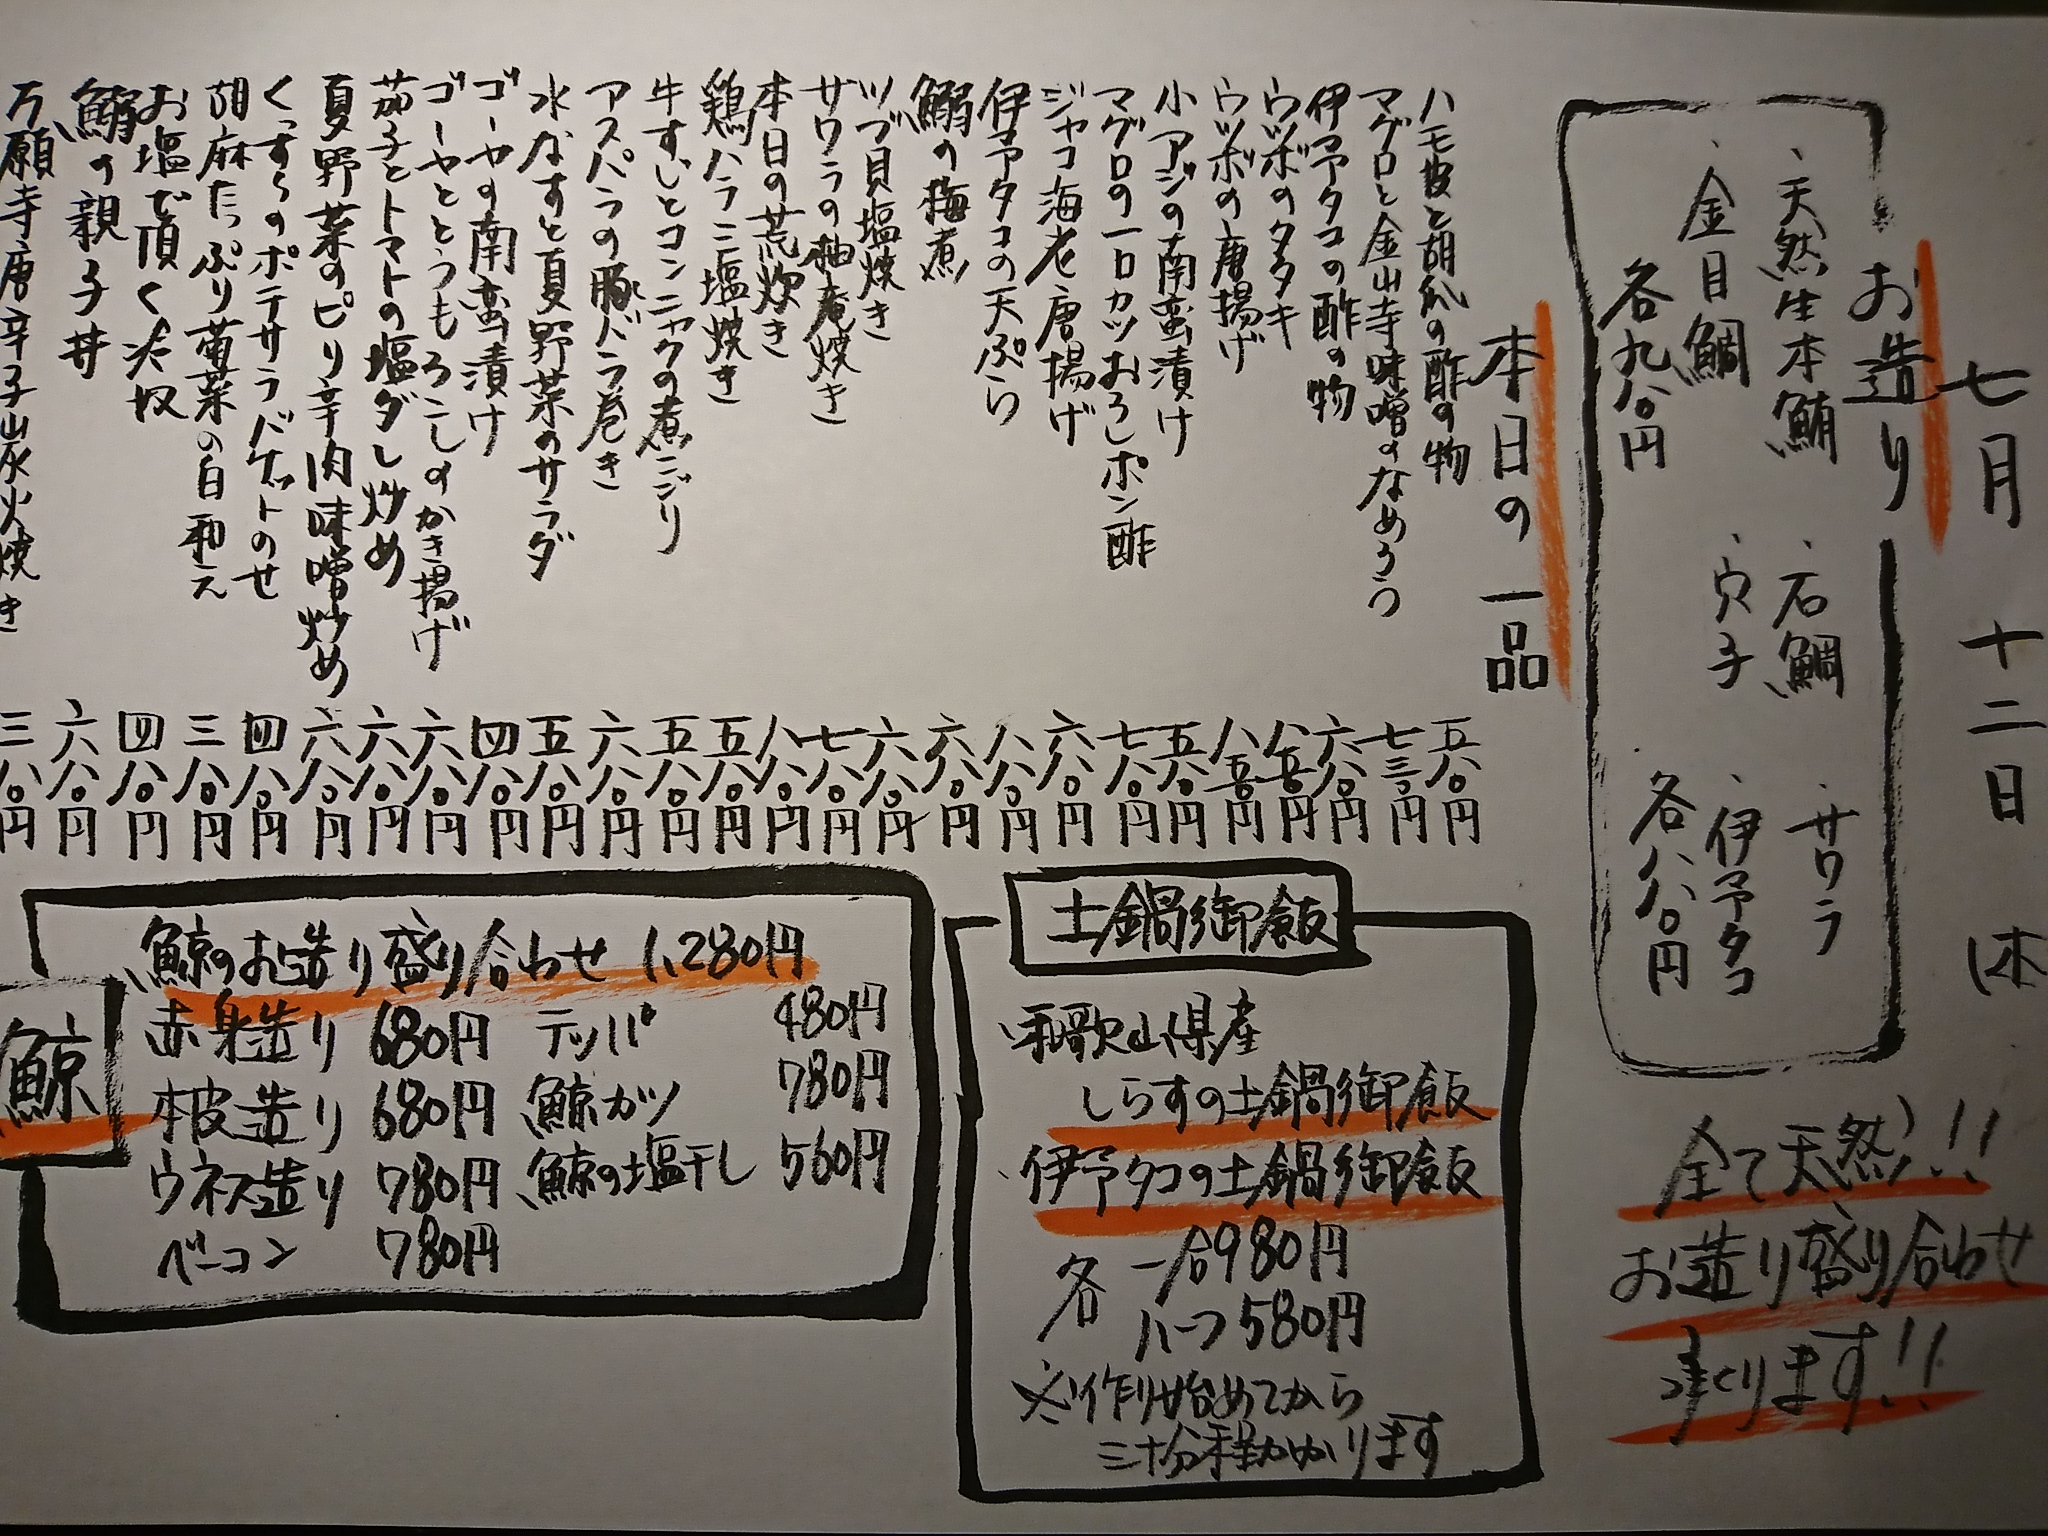 七月十二日(木)
お造り
・天然生本鮪 ・石鯛 ・サワラ
・金目鯛 ・穴子 ・伊予タコ
各九八〇円 各八八〇円
全て天然!!
お造り盛り合わせ
承ります!!
本日の一品
ハモ皮と胡瓜の酢の物 五八〇円
マグロと金山寺味噌のなめろう 七三〇円
伊予タコの酢の物 六八〇円
ウツボのタタキ 八五〇円
ウツボの唐揚げ 八五〇円
小アジの南蛮漬け 五八〇円
マグロの一口カツおろしポン酢 七八〇円
ジャコ海老唐揚げ 六八〇円
伊予タコの天ぷら 八八〇円
鰯の梅煮 六八〇円
ツブ貝塩焼き 六八〇円
サワラの柚庵焼き 七八〇円
本日の荒炊き 八八〇円
鶏ハラミ塩焼き 五八〇円
牛すじとコンニャクの煮こごり 五八〇円
アスパラの豚バラ巻き 六八〇円
水なすと夏野菜のサラダ 五八〇円
ゴーヤの南蛮漬け 四八〇円
ゴーヤととうもろこしのかき揚げ 六八〇円
茄子とトマトの塩ダレ炒め 六八〇円
夏野菜のピリ辛肉味噌炒め 六八〇円
くっすらのポテサラバケットのせ 四八〇円
胡麻たっぷり菊菜の白和え 三八〇円
お塩で頂く冷奴 四八〇円
鮪の親子丼 六八〇円
万願寺唐辛子炭火焼き 三八〇円
土鍋御飯
・和歌山県産
しらすの土鍋御飯
・伊予タコの土鍋御飯
各 一合980円
ハーフ580円
※作り始めてから
三十分程かかります
鯨
鯨のお造り盛り合わせ 1,280円
赤身造り 680円 テッパ 480円
本皮造り 680円 鯨カツ 780円
ウネス造り 780円 鯨の塩干し 560円
ベーコン 780円